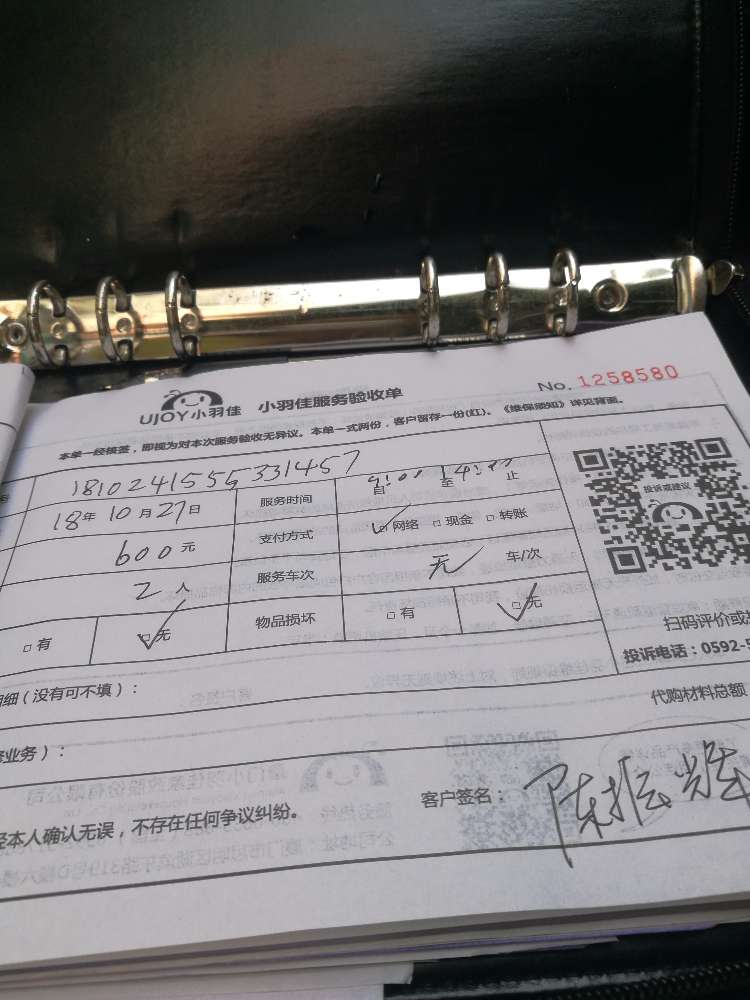 UJOY小羽佳 小羽佳服务验收单 No. 1258580
本单一经核签，即视为对本次服务验收无异议。本单一式两份，客户留存一份(红)。《维保须知》详见背面。
1810241555331457 服务时间 自 至 止
18年 10月27日 支付方式 网络 □现金 □转账
600元 服务车次 无 车/次
2人 物品损坏 □有 □无
□有 □无
投诉或建议
扫码评价或
投诉电话：0592-5
细（没有可不填）：
代购材料总额
业务）：
经本人确认无误，不存在任何争议纠纷。 客户签名：陈振辉